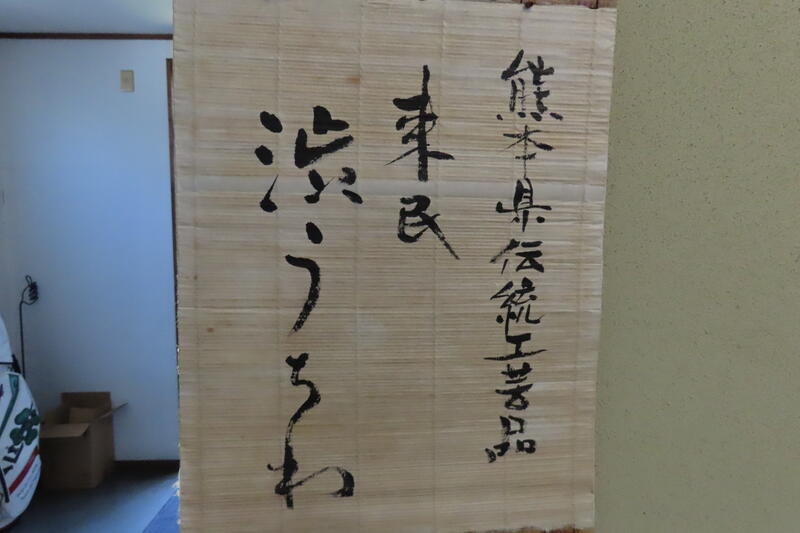 熊本県伝統工芸品
来民
渋うちわ